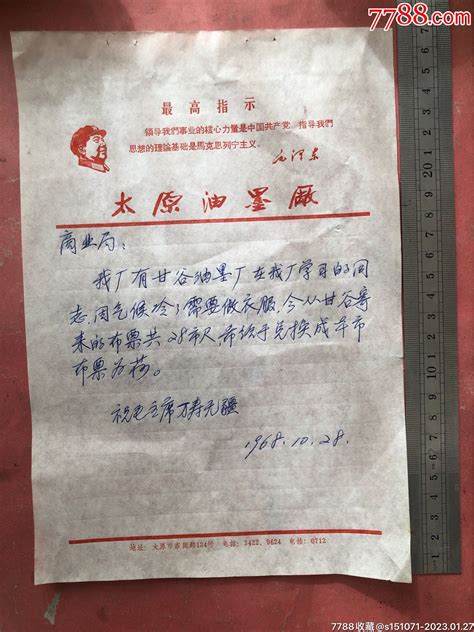 7788.com
中国收藏热线
最高指示
領导我們事业的核心力量是中国共产党，指导我們
思想的理論基础是馬克思列宁主义。
毛泽东
太原油墨厰
商业局：
我厂有甘谷油墨厂在我厂学习的同
志，因气候冷，需要做衣服，今从甘谷寄
来的布票共28市尺，希给于兑换成本市
布票为荷。
祝毛主席万寿无疆
1968.10.28.
地址：太原市 134号 电话：2422、9624 电挂：0712
7788收藏@s151071-2023.01.27